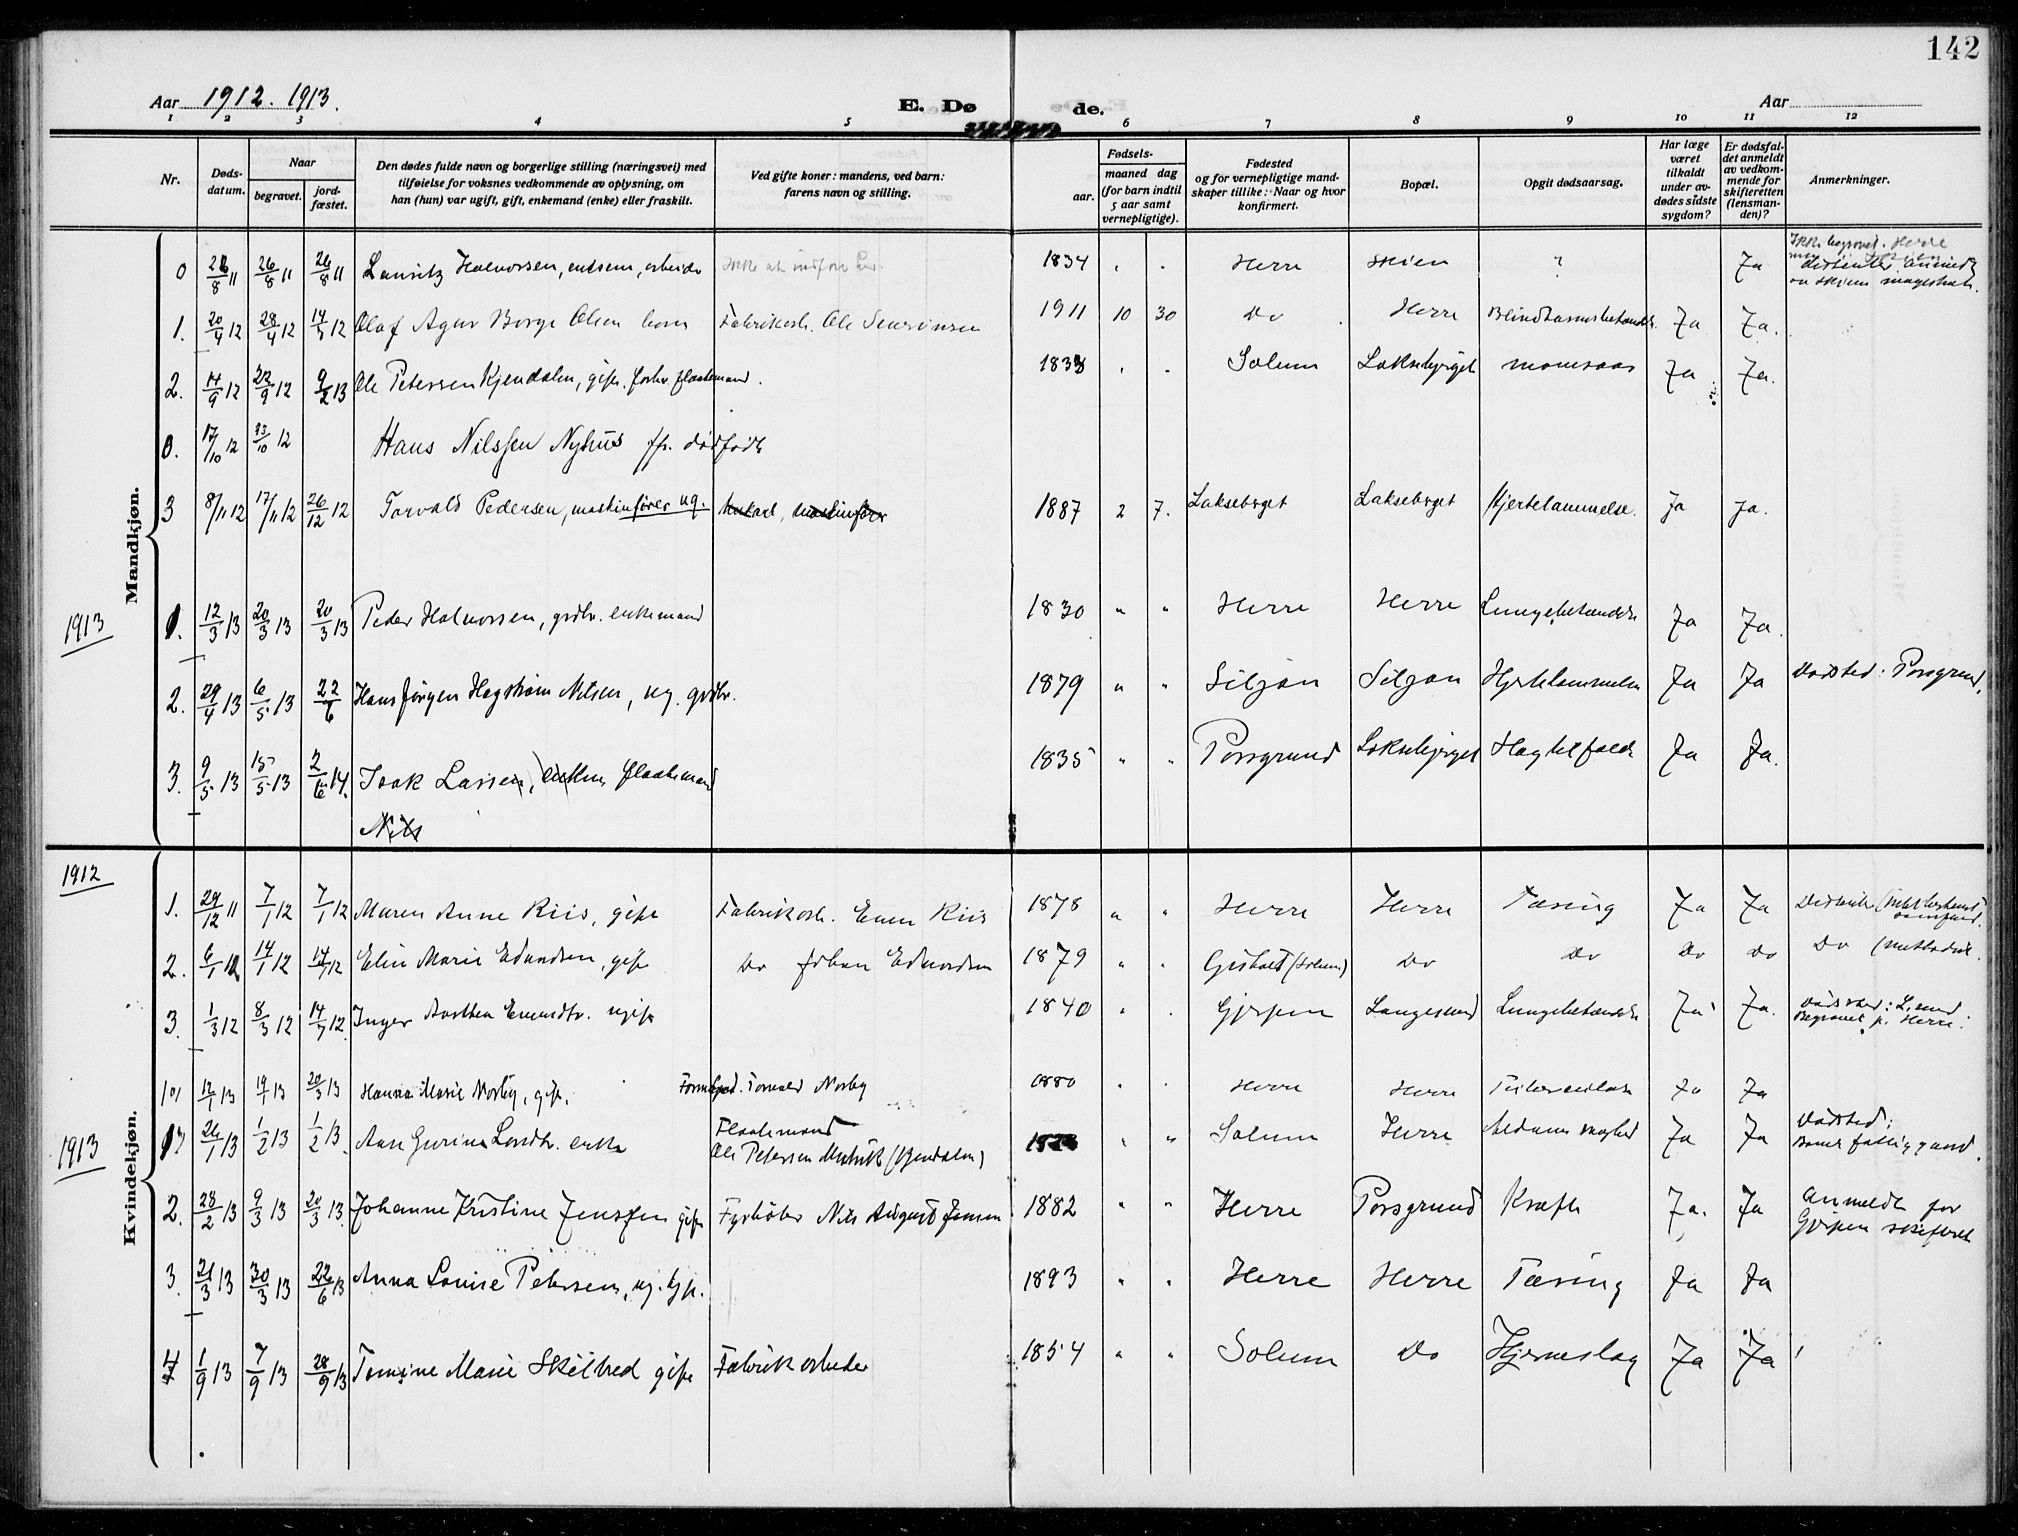 142
Aar 1912. 1913.
E. Dø de.
Aar
1 2 3 4 5 6 7 8 9 10 11 12
Nr.
Døds-datum.
Naar
begravet.
jord-fæstet.
Den dødes fulde navn og borgerlige stilling (næringsvei) med
tilføielse for voksnes vedkommende av oplysning, om
han (hun) var ugift, gift, enkemand (enke) eller fraskilt.
Ved gifte koner: mandens, ved barn:
farens navn og stilling.
Fødsels-
aar.
maaned dag
(for barn indtil
5 aar samt
vernepligtige).
Fødested
og for vernepligtige mand-
skaper tillike: Naar og hvor
konfirmert.
Bopæl.
Opgit dødsaarsag.
Har læge
været
tilkaldt
under av-
dødes sidste
sygdom?
Er dødsfal-
det anmeldt
av vedkom-
mende for
skifteretten
(lensman-
den)?
Anmerkninger.
Mandkjøn.
0 26/8 11 26/8 11 Lauritz Halvorsen, 1834 " " Herre Skien ? Ja
1. 20/4 12 28/4 12 14/7 12 Olaf Agnar Borge Olsen barn Fabrikarb. Ole Severinsen 1911 10 30 Do Herre Blindtarmsbetændels. Ja Ja.
2. 14/9 12 22/9 12 9/2 13 Ole Petersen Kjendalen, gift. forhv. flaatemand. 1838 " " Solum Laksebjerget Ja Ja.
0. 17/10 12 23/10 12 Hans Nilssen Nyhus dødfødt
3 8/11 12 17/11 12 26/12 12 Torvald Pedersen, maskinfører ug. 1887 2 7. Laksebrget Laksebrget Hjertelammelse. Ja Ja.
1913
1. 12/3 13 20/3 13 20/3 13 Peder Halvorsen, grdbr. enkemand 1830 " " Herre Herre Lungebetændels Ja Ja.
2. 29/4 13 6/5 13 22/6 Hans Jørgen Hegstrøm Nilsen, ug. grdbr. 1879 " " Siljan Siljan Hjertelammelse Ja Ja Dødsted: Porsgrund.
3. 9/5 13 15/5 13 2/6 14. Isak Lassen, enkem flaatemand 1835 " " Porsgrund Laksebjerget Ja Ja.
Nils
1912
Kvindekjøn.
1. 29/12 11 7/1 12 7/1 12 Maren Anne Riis, gift Fabrikarb. Even Riis 1878 " " Herre Herre Tæring Ja Ja
2. 6/1 12 14/1 12 14/7 12 Elin Marie Edvardsen, gift Do Johan Edvardsen 1879 " " Gisholt (Solum) Do Do Do Do Do (Methodist.
3. 1/3 12 8/3 12 14/7 12. Inger Evensdtr. ugift 1840 " " Gjerpen Langesund Lungebetændels Ja Ja. Dødssted: L.sund.
Begravet p. Herre.
12/1 13 19/1 13 20/3 13 Hanna Marie Norby, gift. Formand. Torvald Norby 1880 " " Herre Herre Tuberculose Ja Ja
1913
1 26/1 13 1/2 13 1/2 13. Anne Gurine Larsdtr. enke Flaatemand
Ole Petersen (Kjendalen) " " Solum Herre Alderdomssvaghed Ja Ja Dødsted:
fattiggaard.
2. 28/2 13 9/3 13 20/3 13. Johanne Kristine Jenssen gift Fyrbøter Nils August Jensen 1882 " " Herre Porsgrund Kræft Ja. Ja Anmeldt for
Gjerpen skifteret
3. 21/3 13 30/3 13 22/6 13 Anna Louise Petersen, ug. tjp. 1893 " " Herre Herre Tæring Ja Ja
4 1/9 13 7/9 13 28/9 13 Tomine Marie Skilbred gift Fabrikarbeider 1854 " " Solum Do Hjerneslag Ja Ja